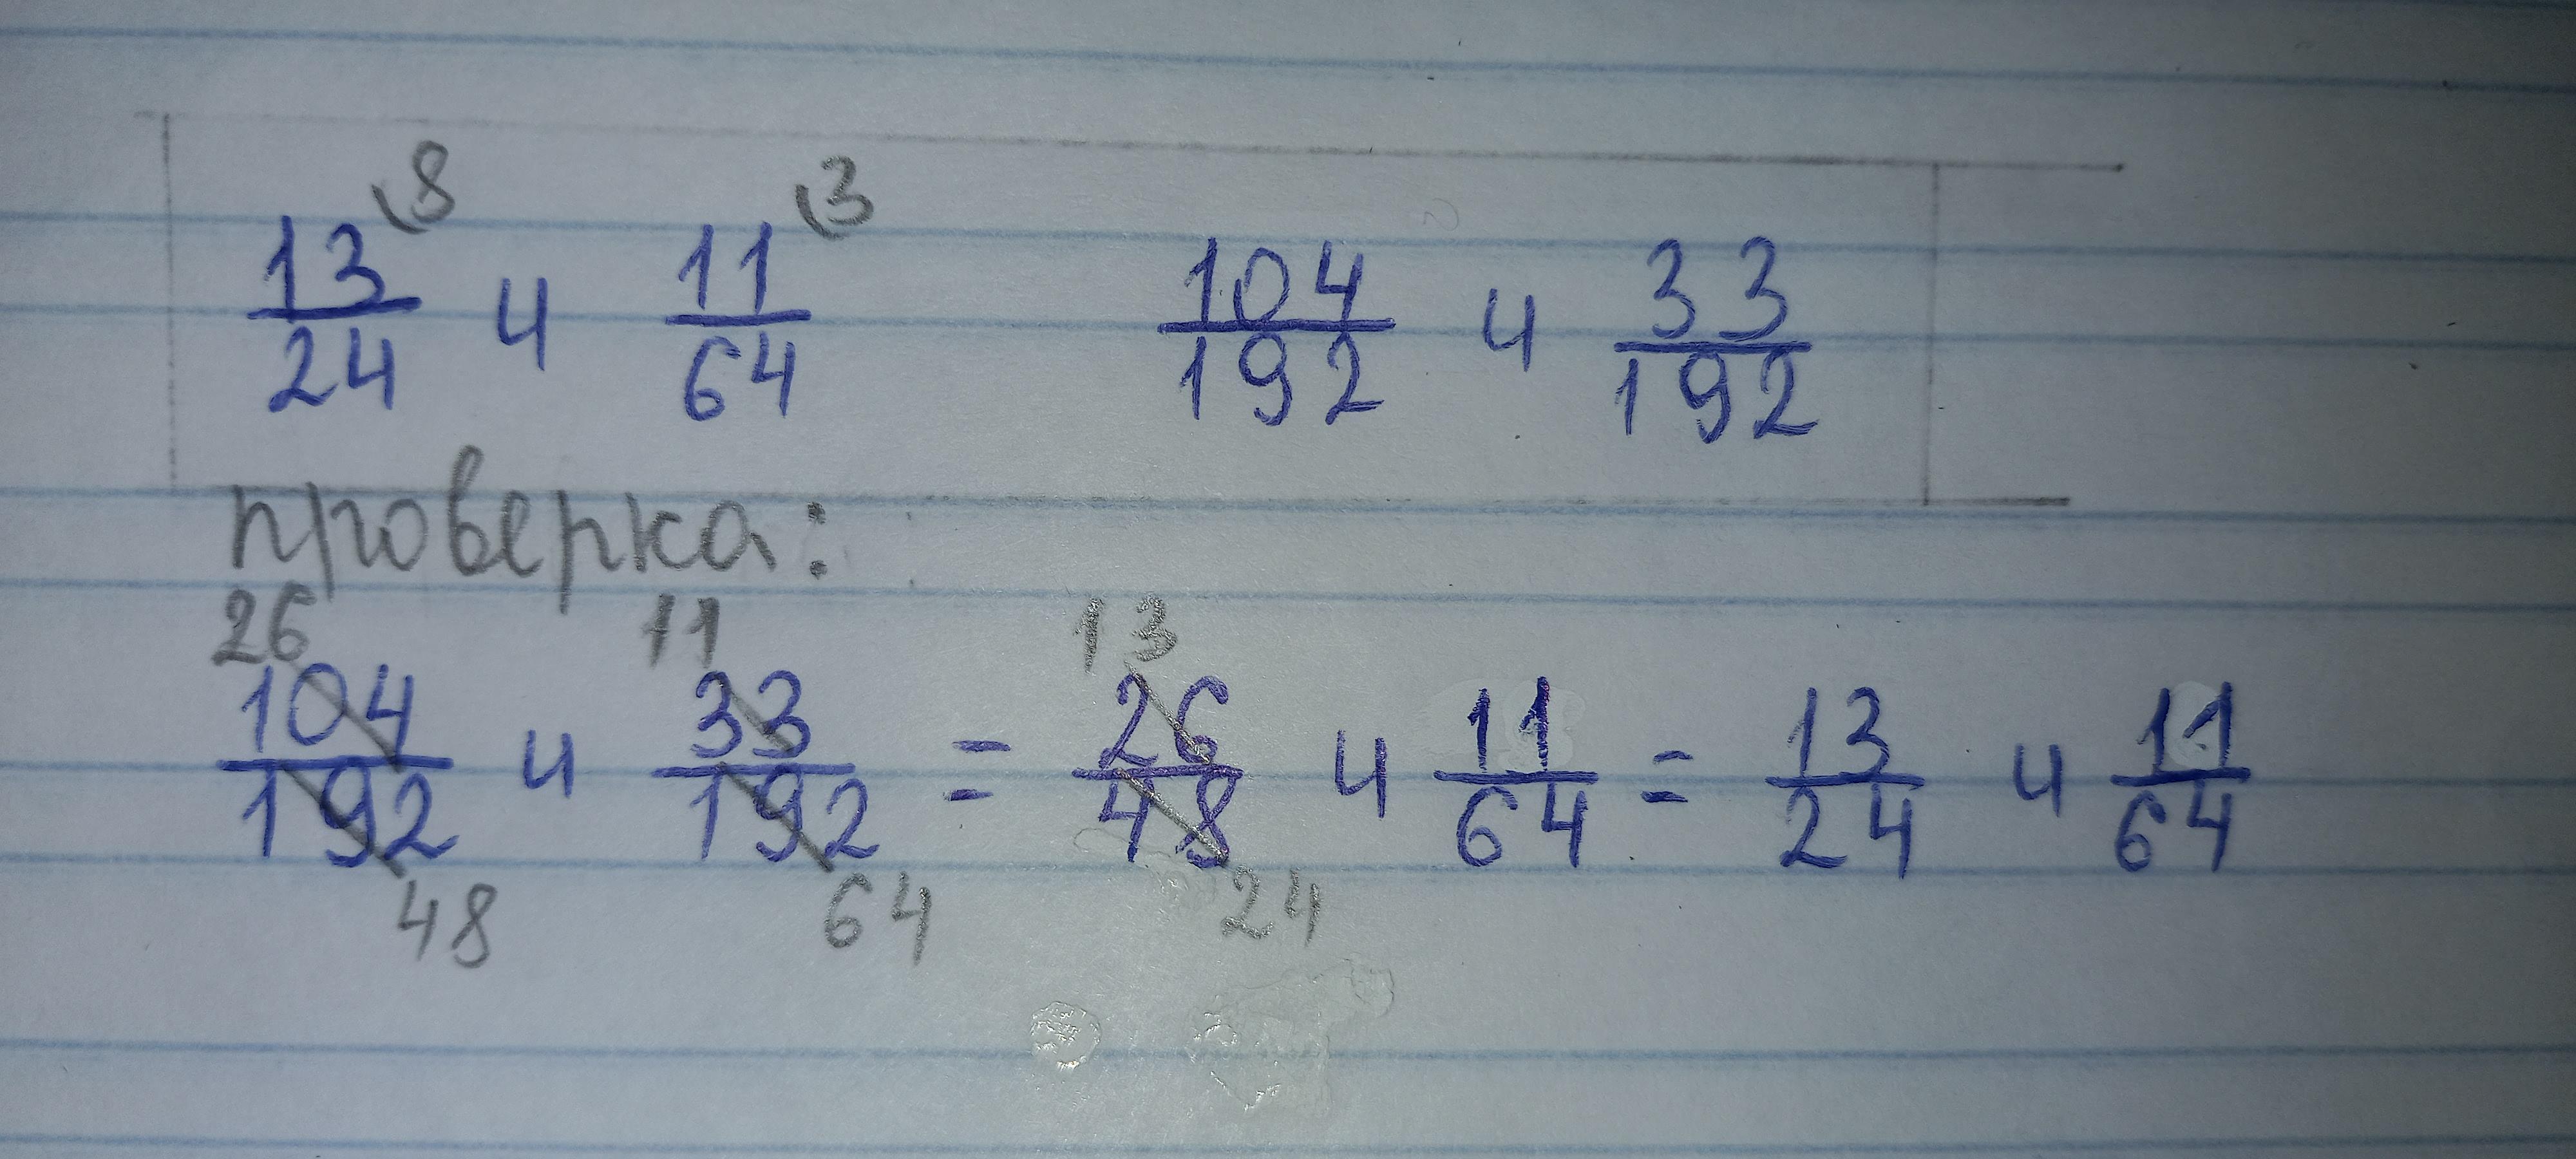 13/24 ⁽8 и 11/64 ⁽3 104/192 и 33/192
проверка:
26 11 13
104/192 и 33/192 = 26/48 и 11/64 = 13/24 и 11/64
48 64 24